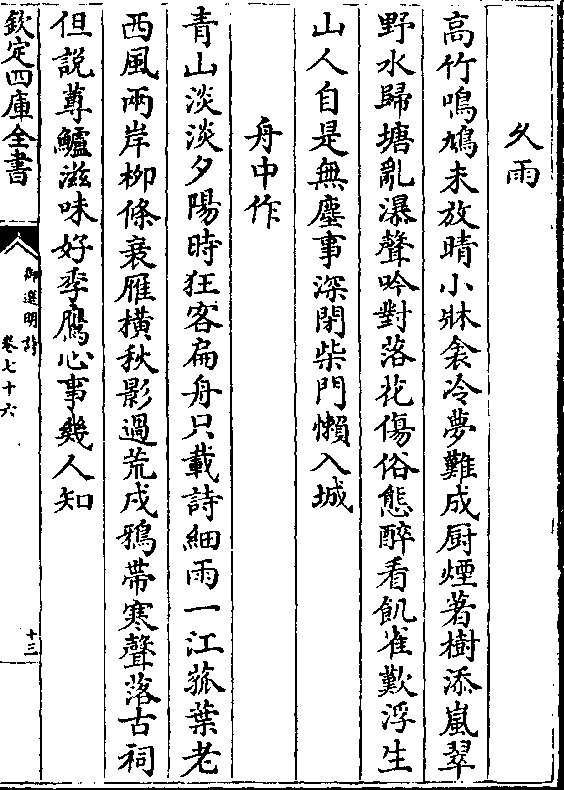 久雨
高竹鳴鳩未放晴小牀衾冷夢難成厨煙著樹添嵐翠
野水歸塘亂瀑聲吟對落花傷俗態醉看飢雀歎浮生
山人自是無塵事深閉柴門懶入城
舟中作
青山淡淡夕陽時狂客扁舟只載詩細雨一江菰葉老
西風兩岸柳條衰雁橫秋影過荒戍鴉帶寒聲落古祠
但説蓴鱸滋味好季鷹心事幾人知
欽定四庫全書
御選明詩
卷七十六
十三